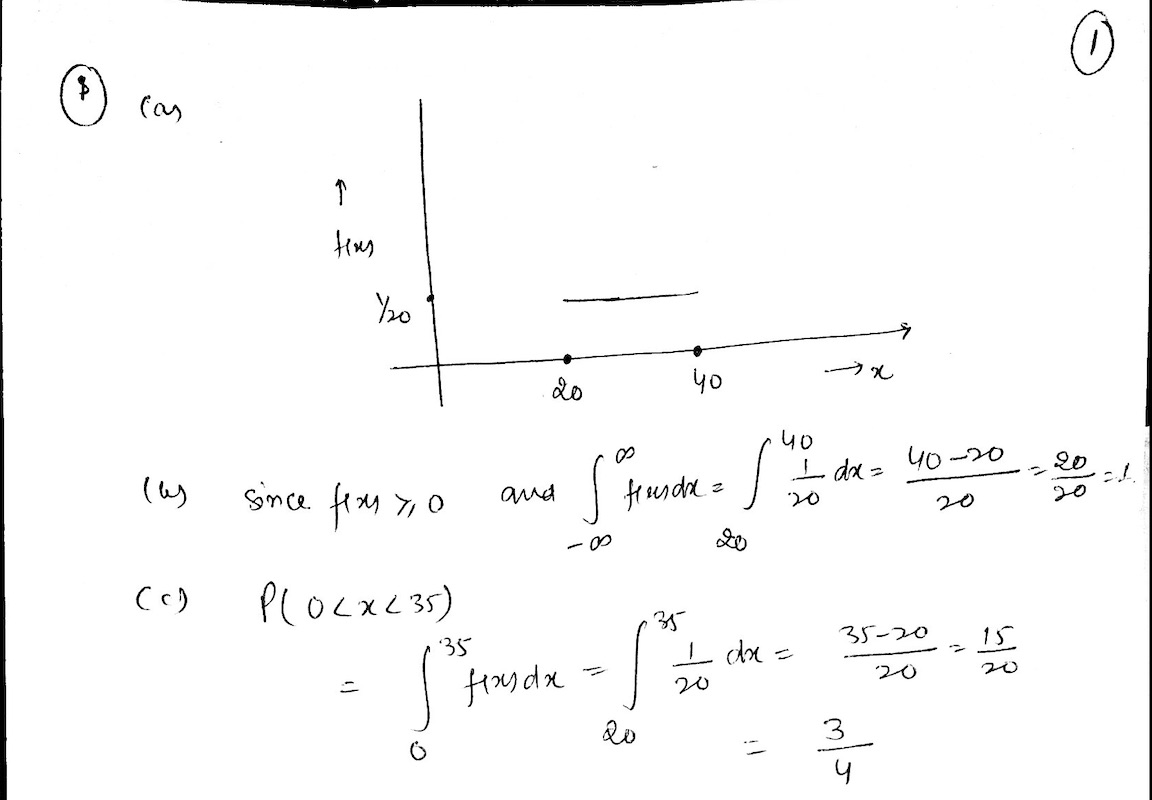 ①
(a)
↑
f(x)
1/20
20
40
→ x
(b) since f(x) ≥ 0 and ∫_{-∞}^{∞} f(x)dx = ∫_{20}^{40} 1/20 dx = (40-20)/20 = 20/20 = 1.
(c) P(0<x<35)
= ∫_{0}^{35} f(x)dx = ∫_{20}^{35} 1/20 dx = (35-20)/20 = 15/20
= 3/4